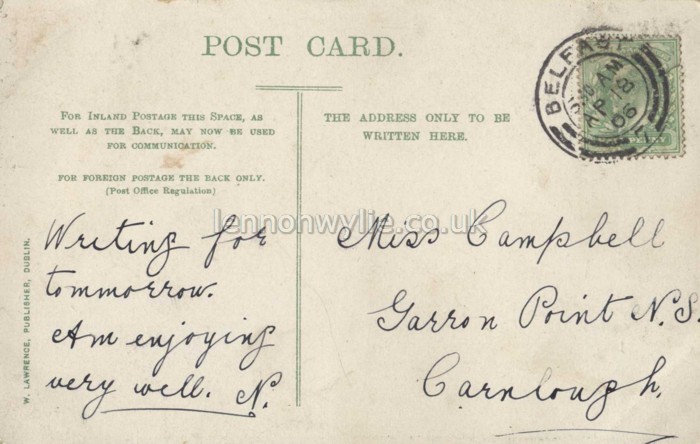 POST CARD.
FOR INLAND POSTAGE THIS SPACE, AS
WELL AS THE BACK, MAY NOW BE USED
FOR COMMUNICATION.
FOR FOREIGN POSTAGE THE BACK ONLY.
(Post Office Regulation)
THE ADDRESS ONLY TO BE
WRITTEN HERE.
BELFAST
AM
AP 8
06
lennonwylie.co.uk
Writing for
tommorrow.
Am enjoying
very well. N.
Miss Campbell
Garron Point N.S.
Carnlough.
W. LAWRENCE, PUBLISHER, DUBLIN.